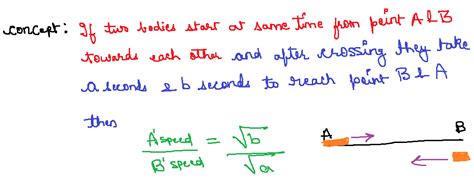 concept: If two bodies start at same time from point A & B
towards each other and after crossing they take
a seconds & b seconds to reach point B & A
then
A'speed / B'speed = √b / √a
A B